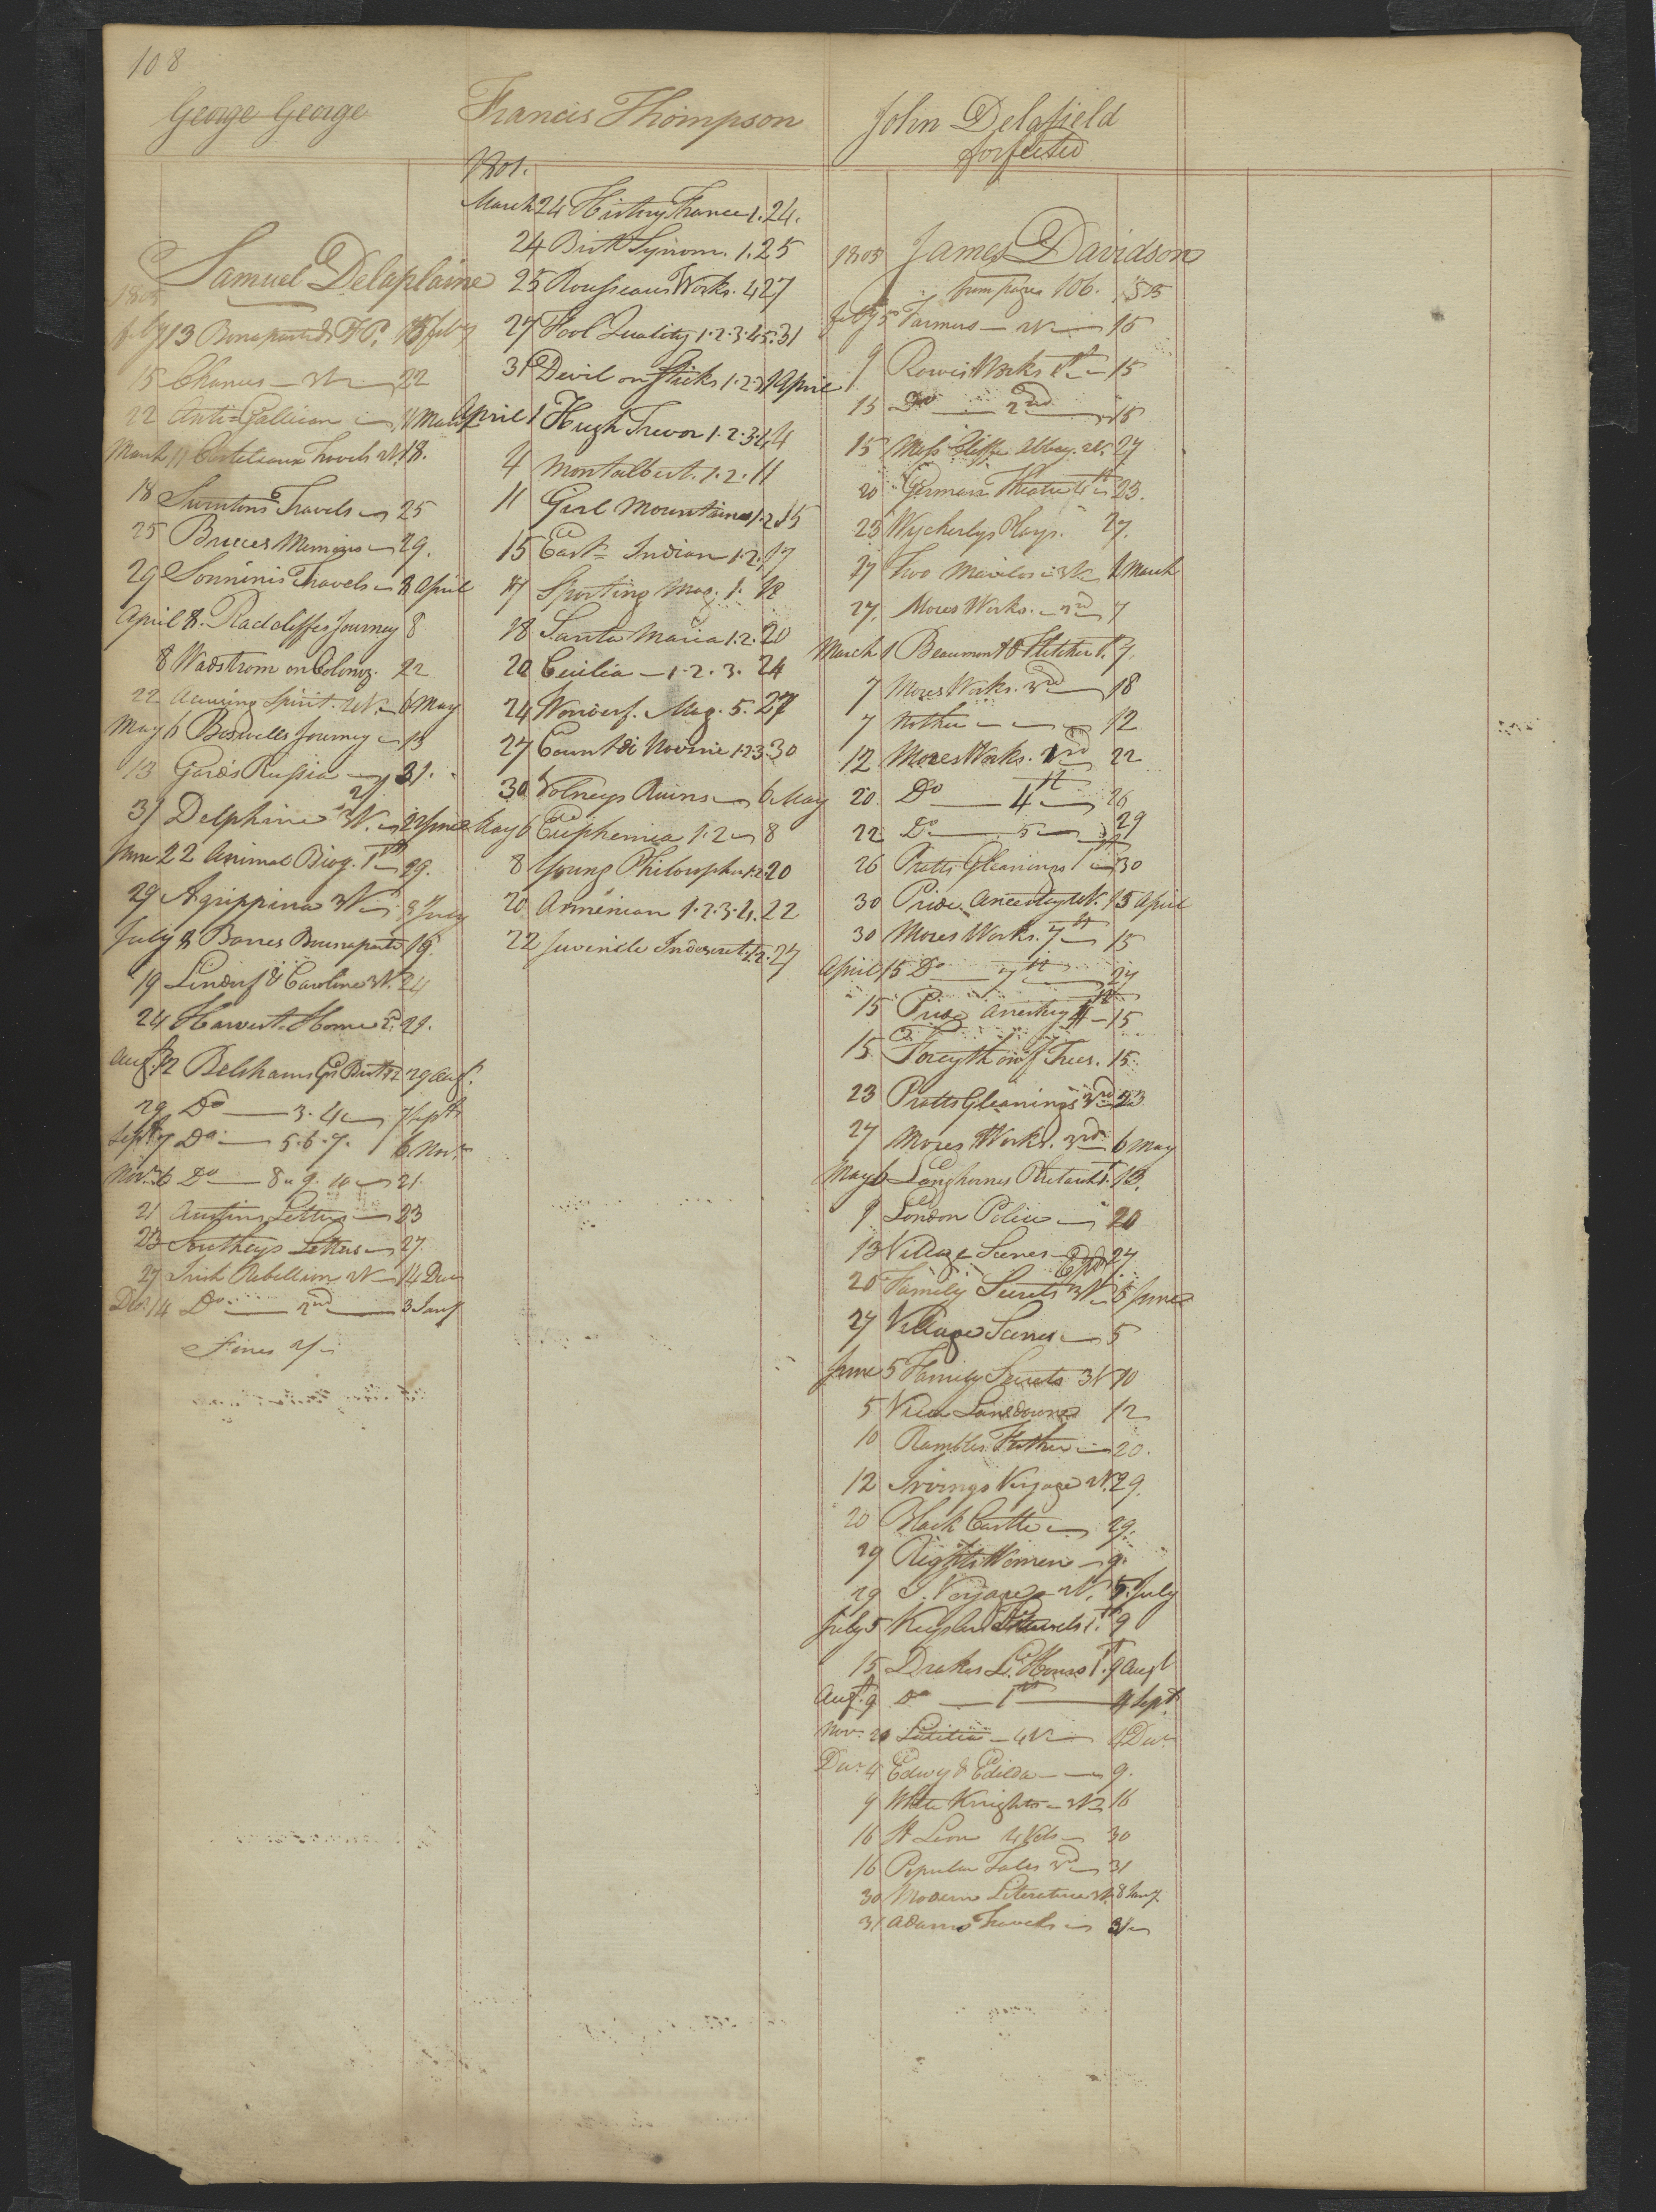 108
George George
Samuel Delaplaine
1805
13 Bonaparte
15 Chances 22
22 Anti=Gallican
March 11 Travels 18.
18 Travels 25
25 Bruces Memoirs 29.
29 Sonninis Travels 8 April
April 8. Radcliffes Journey 8
8 Wadstrom on Coloniz. 22
22 Spirit. 6 May
May 6 Boswells Journey 13
13 Russia 31.
31 Delphine 22 June
June 22 Animal Biog. 1st 29.
29 Agrippina 3V. 8 July
July 8 Barres Bonaparte 19.
19 Lindorf & Caroline 3V. 24
24 Harvest Home 2. 29.
Augt. 12 Belshams 29 Augt.
29 Do 3. 4 7 Septr
Septr 7 Do 5. 6. 7. 6 Novr
Novr. 6 Do 8. 9. 10 21.
21 Letters 23
23 Southeys Letters 27.
27 Irish Rebellion 14 Decr
Decr. 14 Do 2nd 3 Jany
Fines
Francis Thompson
1801.
March 24 History France 1. 24.
24 Brit Synom. 1. 25
25 Rousseaus Works. 4 27
27 Fool Quality 1. 2. 3. 4 5. 31
31 Devil on Sticks 1. 2. 3 1 April
April 1 Hugh Trevor 1. 2. 3. 4 4
4 Montalbert. 1. 2. 11
11 Girl Mountains 1. 2 15
15 East Indian 1. 2. 17
17 Sporting Mag. 1. 18
18 Santa Maria 1. 2. 20
20 Cecilia 1. 2. 3. 24
24 Wonderf. Mag. 5. 27
27 Count di Novini 1. 2. 3. 30
30 Volneys Ruins 6 May
May 6 Euphemia 1. 2 8
8 Young Philosopher 1. 2. 20
20 Armenian 1. 2. 3. 4. 22
22 Juvenile Indiscret. 1. 2. 27
John Delafield
forfeited
1805 James Davidson
from page 106.
5 Farmers 15
9 Rowes Works 1st 15
15 Do 2nd 15
15 Abbey. 27
20 German Theatre 4th 23.
23 Wycherlys Plays. 27.
27 Two 1 March
27. Mores Works. 2nd 7
March 1 Beaumont & Fletcher 1. 7.
7 Mores Works. 3rd 18
7 Mother 12
12 Mores Works. 22
20 Do 4th 26
22 Do 5 29
26 Pratts Gleanings 1st 30
30 Pride Ancestry 15 April
30 Mores Works. 7th 15
April 15 Do 7th 27
15 Pride Ancestry 4th 15
15 Forsyth on f Trees. 15.
23 Pratts Gleanings 3rd 23
27 Mores Works. 3rd 6 May
May 6 Langhornes Plutarch 1. 13.
9 London Police 20
13 Village Scenes 27
20 Family Secrets 5 June
27 Village Scenes 5
June 5 Family Secrets 3V 10
5 Lansdowne 12
10 Rambles Father 20.
12 Irvings Voyage 29.
20 Black Castle 29.
29 Rights Women 9.
29 S. Voyage 5. July
July 5 Travels 1. 9
15 Drakes L. Hours 1st. 9 Augt
Augt. 9 Do 1st 4 Sept.
Novr. 20 Letitia 4V 4 Decr
Decr 4 Edwy & Edilda 9.
9 White Knights 16
16 St Leon 4 Vols 30
16 Popular Tales 31
30 Modern Literature 3V. 8 Jany
31 Adams Travels 31